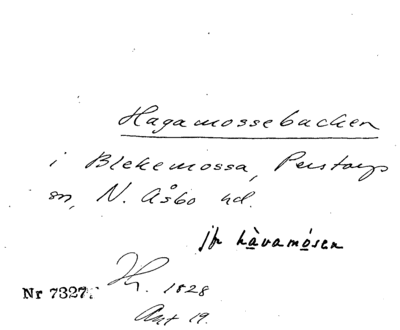 Hagamossebacken
i Blekemossa, Perstorps
sn, N. Åsbo hd.
jfr hàvamósen
Nr 7327. Th. 1828
Akt 19.